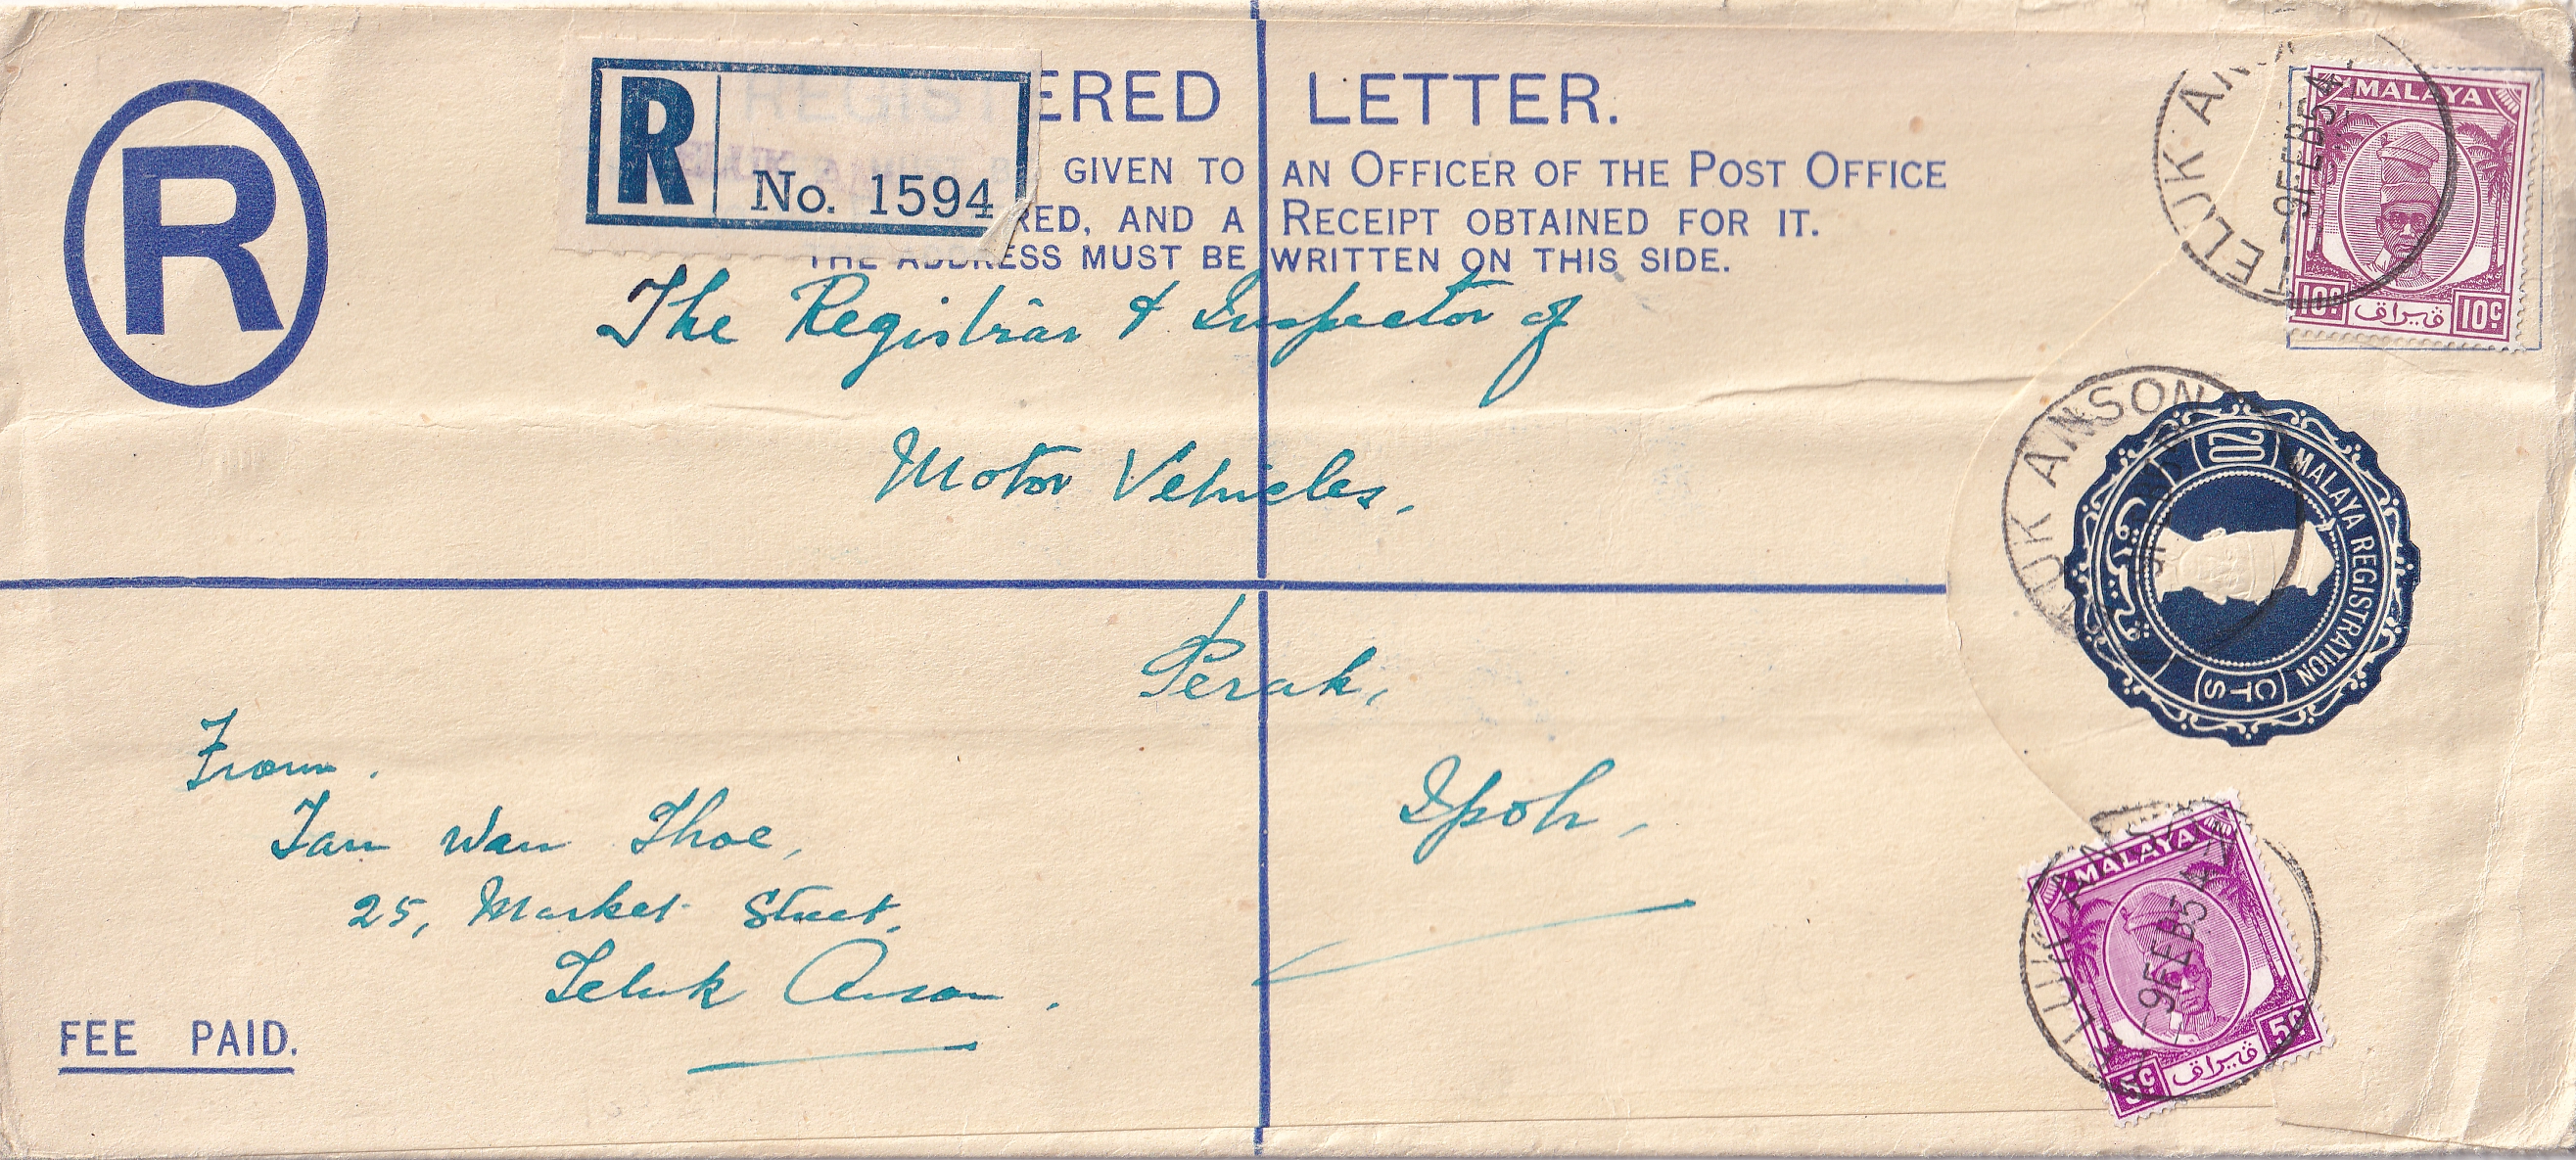 R
R
No. 1594
ERED LETTER.
GIVEN TO AN OFFICER OF THE POST OFFICE
RED, AND A RECEIPT OBTAINED FOR IT.
THE ADDRESS MUST BE WRITTEN ON THIS SIDE.
The Registrar & Inspector of
Motor Vehicles,
Perak,
Ipoh,
From.
Tan Wan Thoe,
25, Market Street,
Teluk Anson.
FEE PAID.
TELUK ANS
-9FEB54
MALAYA
10c قيراق 10c
TELUK ANSON
20
MALAYA REGISTRATION
CTS
MALAYA
-9FEB54
5c قيراق 5c